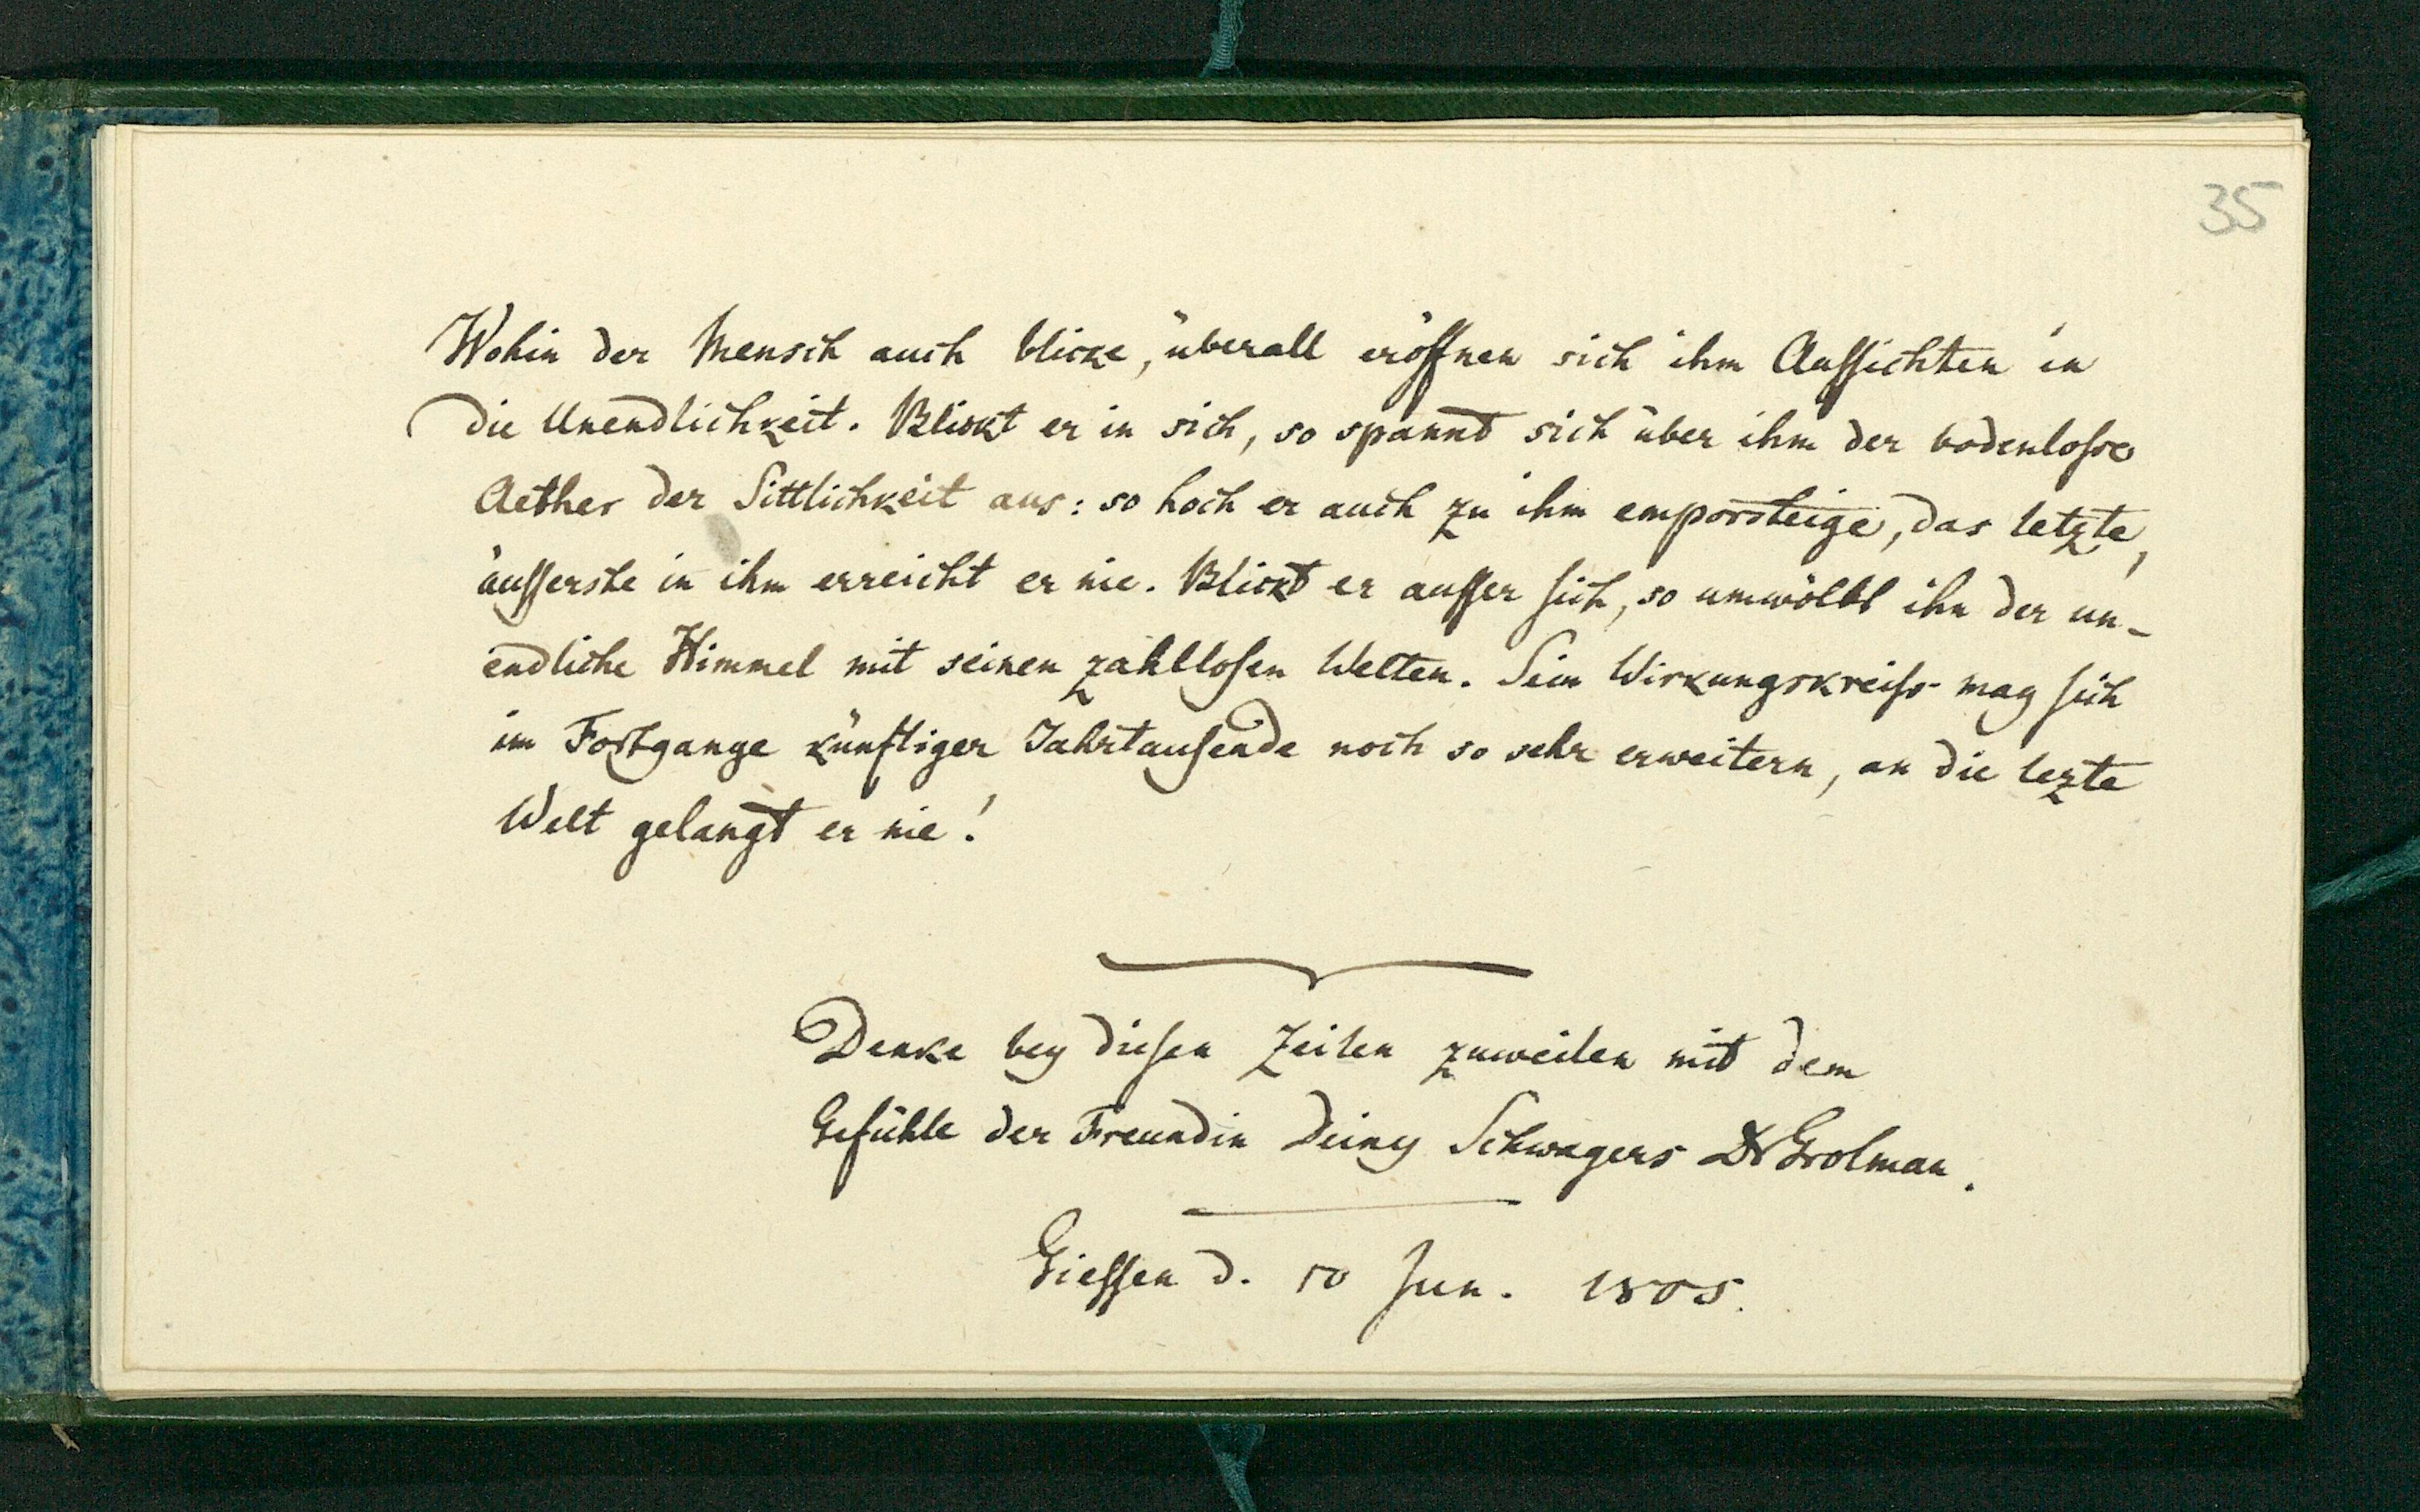 35
Wohin der Mensch auch blicke, überall eröffnen sich ihm Aussichten in
die Unendlichkeit. Blickt er in sich, so spannt sich über ihm der bodenlose
Aether der Sittlichkeit aus: so hoch er auch zu ihm emporsteige, das letzte,
äusserste in ihm erreicht er nie. Blickt er ausser sich, so umwölbt ihn der un-
endliche Himmel mit seinen zahllosen Welten. Sein Wirkungskreiss mag sich
im Fortgange künftiger Jahrtausende noch so sehr erweitern, an die lezte
Welt gelangt er nie!
Denke bey diesen Zeilen zuweilen mit dem
Gefühle der Freundin Deines Schwagers Dr Grolman.
Giessen d. 10 Jun. 1805.